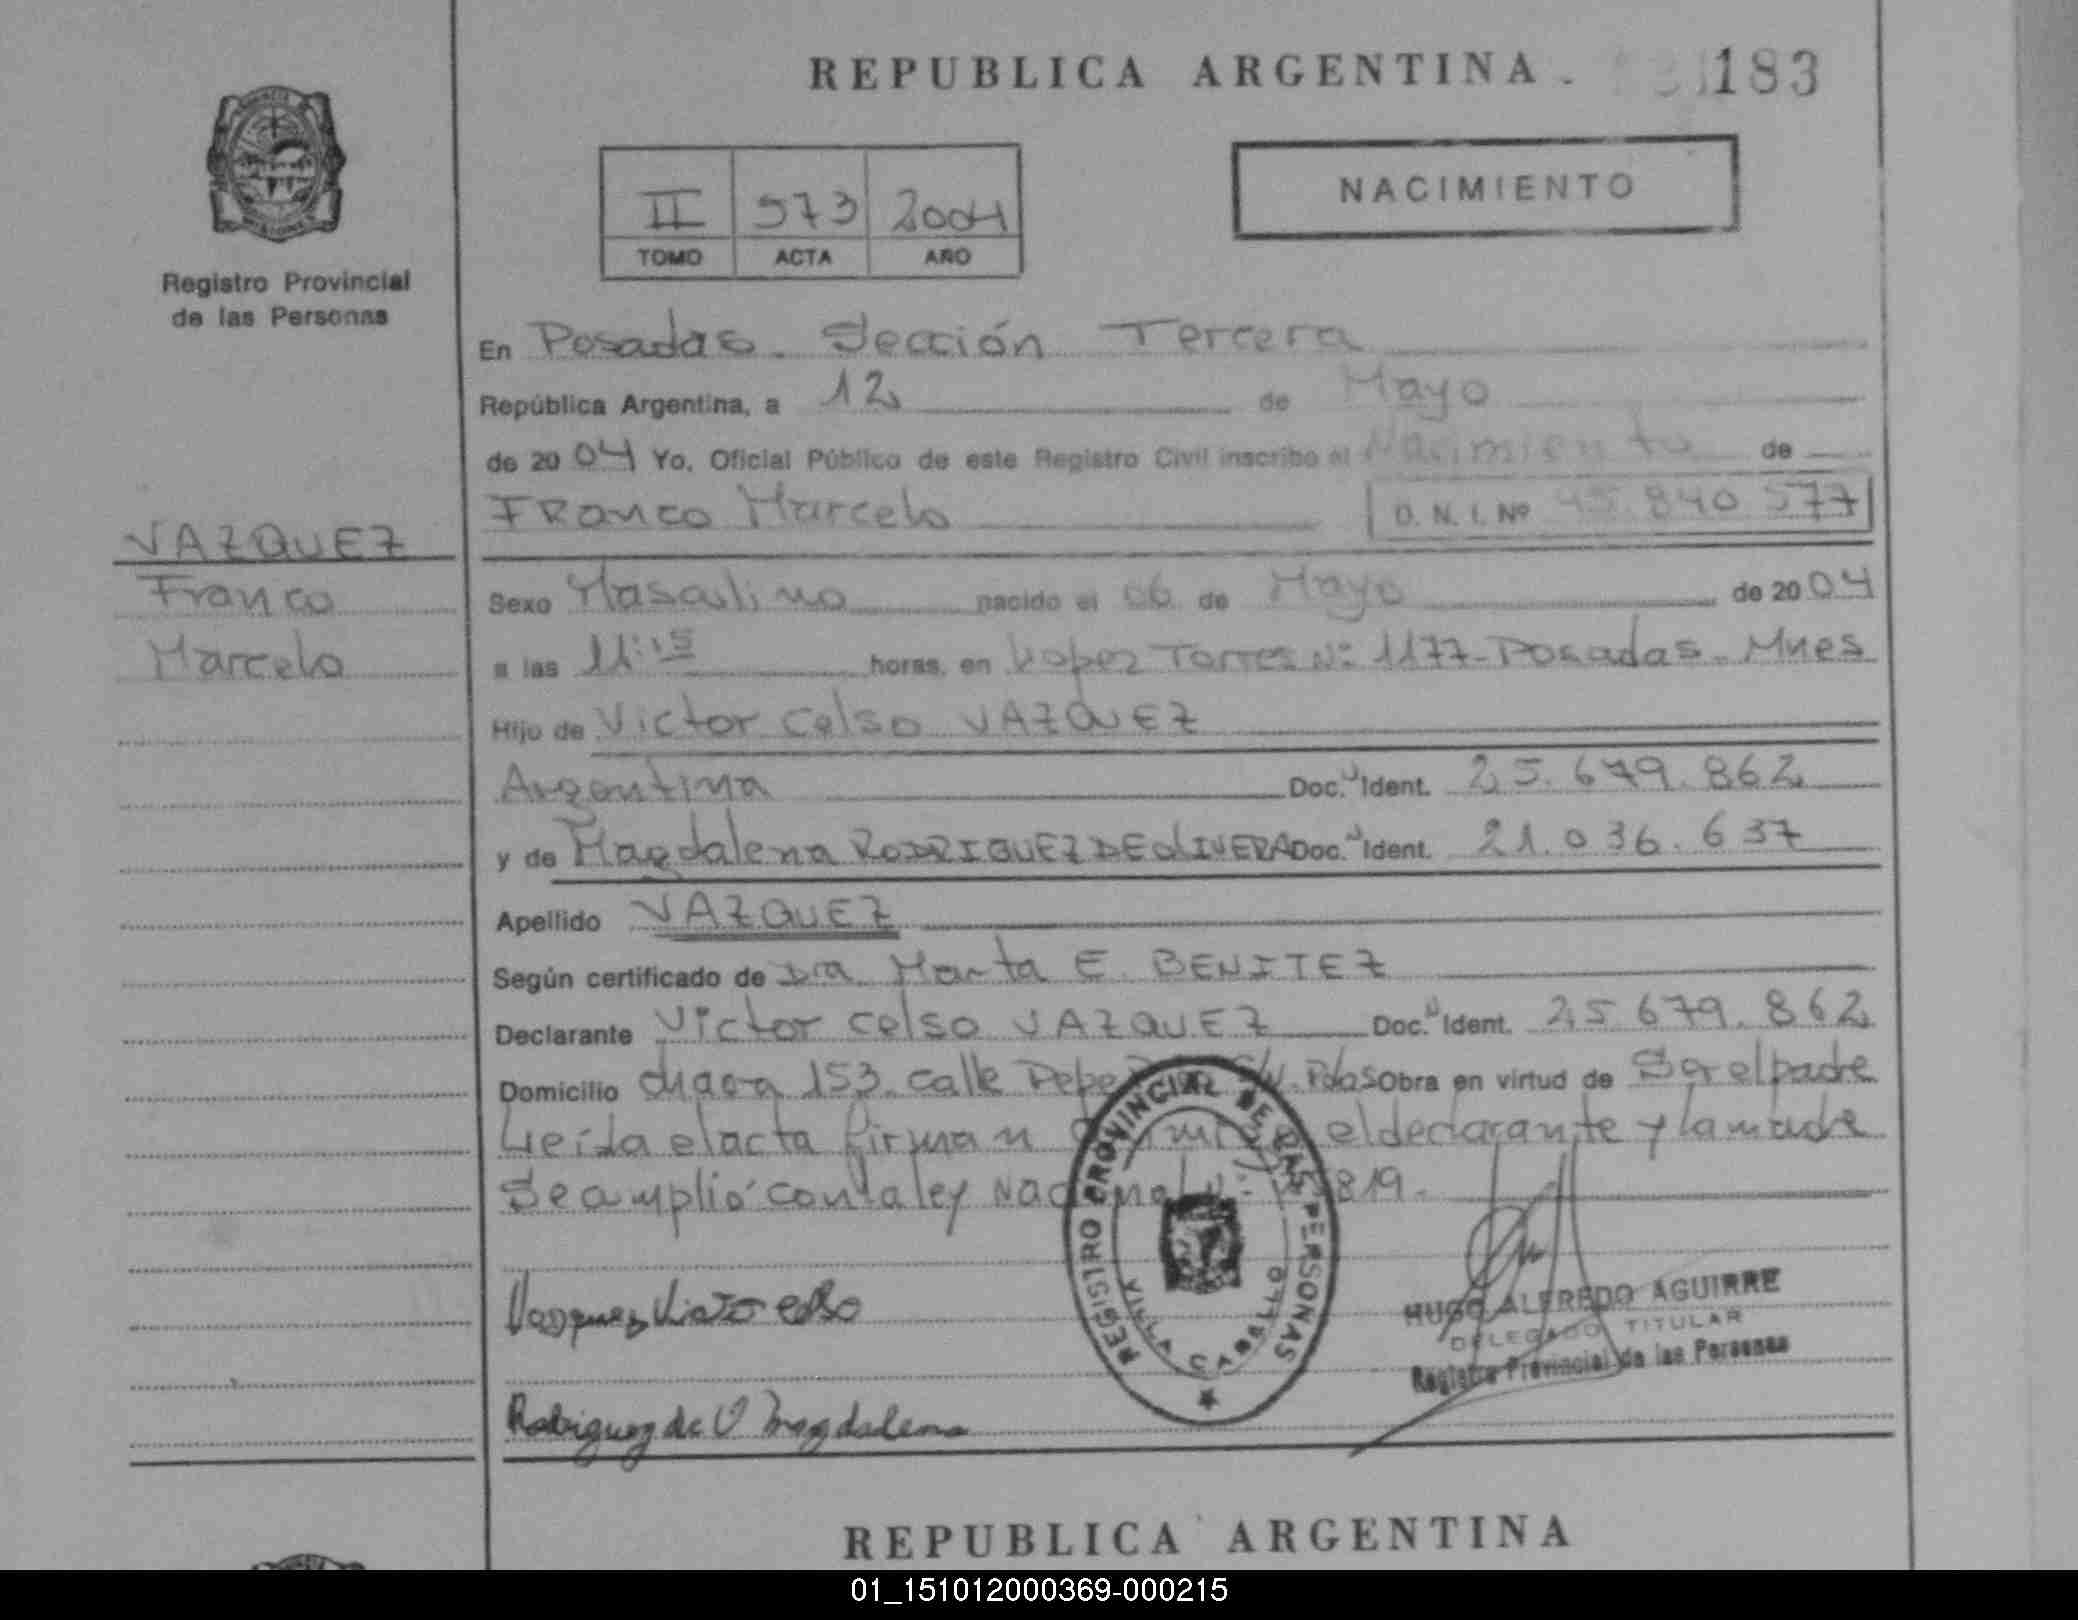 REPUBLICA ARGENTINA. 183
II 573 2004
TOMO ACTA AÑO
NACIMIENTO
Registro Provincial
de las Personas
En Posadas. Sección Tercera
República Argentina, a 12 de Mayo
de 2004 Yo, Oficial Público de este Registro Civil inscribo el Nacimiento de
Franco Marcelo D. N. I. Nº 45.840 577
VAZQUEZ
Franco
Marcelo
Sexo Masculino nacido el 06 de Mayo de 2004
a las 11:15 horas, en Lopez Torres Nº 1177-Posadas-Mnes
Hijo de Victor Celso VAZQUEZ
Argentina Doc. Ident. 25.679.862
y de Magdalena RODRIGUEZ DE OLIVERA Doc. Ident. 21.036.637
Apellido VAZQUEZ
Según certificado de Dra Marta E. BENITEZ
Declarante Victor Celso VAZQUEZ Doc. Ident. 25.679.862
Domicilio chacra 153. calle Pdas Obra en virtud de Ser el padre
Leída el acta firman el declarante y la madre
Se amplió con la ley Nacional 819.
Vazquez Victor Celso
Rodriguez de O Magdalena
REGISTRO PROVINCIAL DE LAS PERSONAS
VILLA CABELLO
HUGO ALFREDO AGUIRRE
DELEGADO TITULAR
Registro Provincial de las Personas
REPUBLICA ARGENTINA
01_151012000369-000215